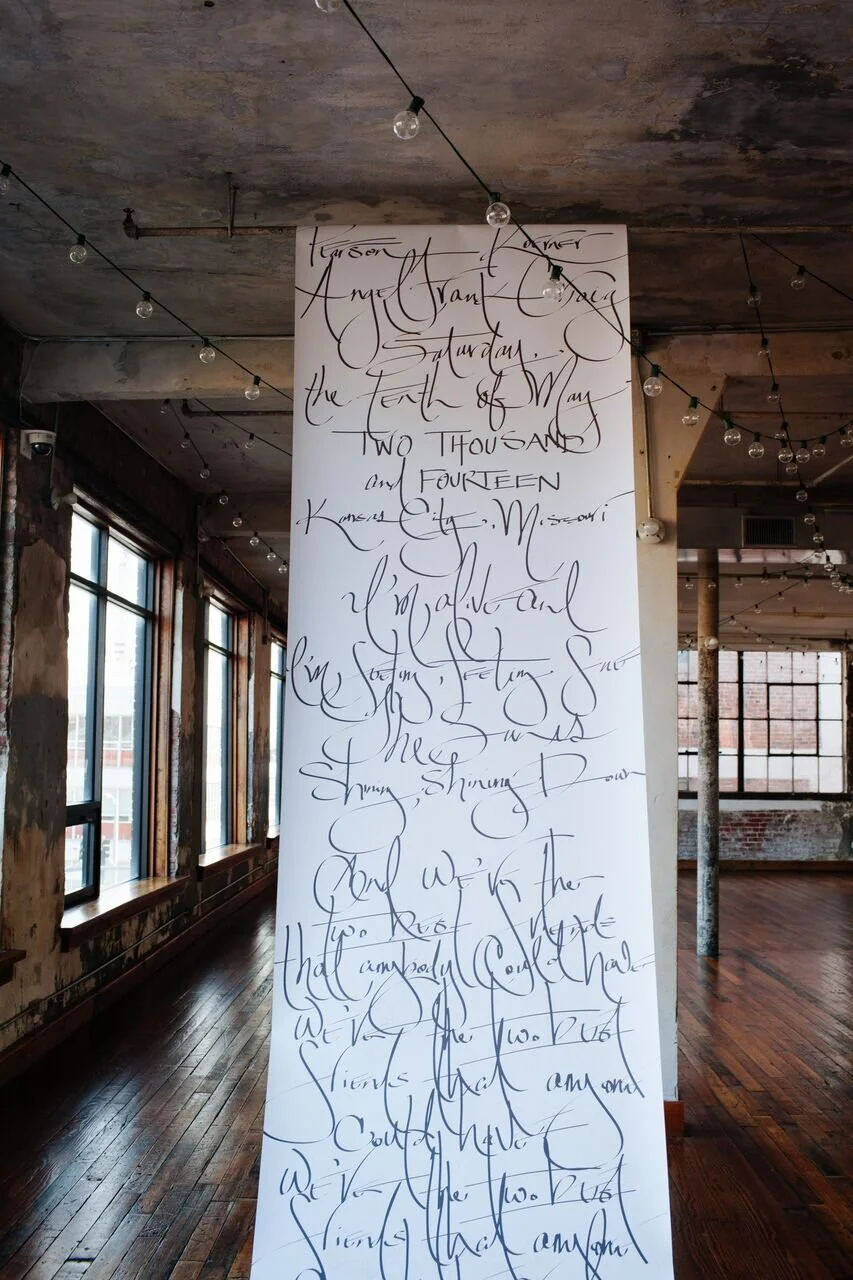 Pearson Koerner
Angel Frank
Saturday,
the Tenth of May
TWO THOUSAND
and FOURTEEN
Kansas City, Missouri
I'm alive and
I'm feeling, feeling
the
Shining, Shining Down
And We've the
two Best Friends
that anybody Could have
We've the two Best
friends that anyone
Could have
We've the two Best
friends that anyone